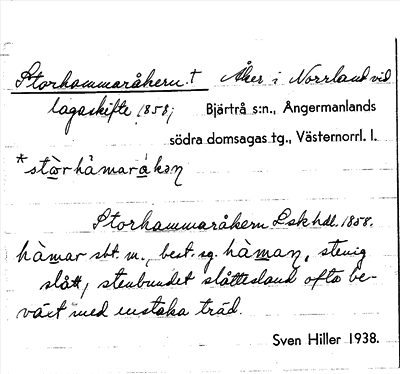 Storhammaråkern.† Åker i Norrland vid
lagaskifte 1858;
Bjärtrå s:n., Ångermanlands
södra domsagas tg., Västernorrl. l.
*stòrhàmaràkəɲ
Storhammaråkern Lskhdl. 1858.
hàmar sbt. m., best. sg. hàmaɲ, stenig
slått, stenbundet slåttesland ofta be-
växt med enstaka träd.
Sven Hiller 1938.